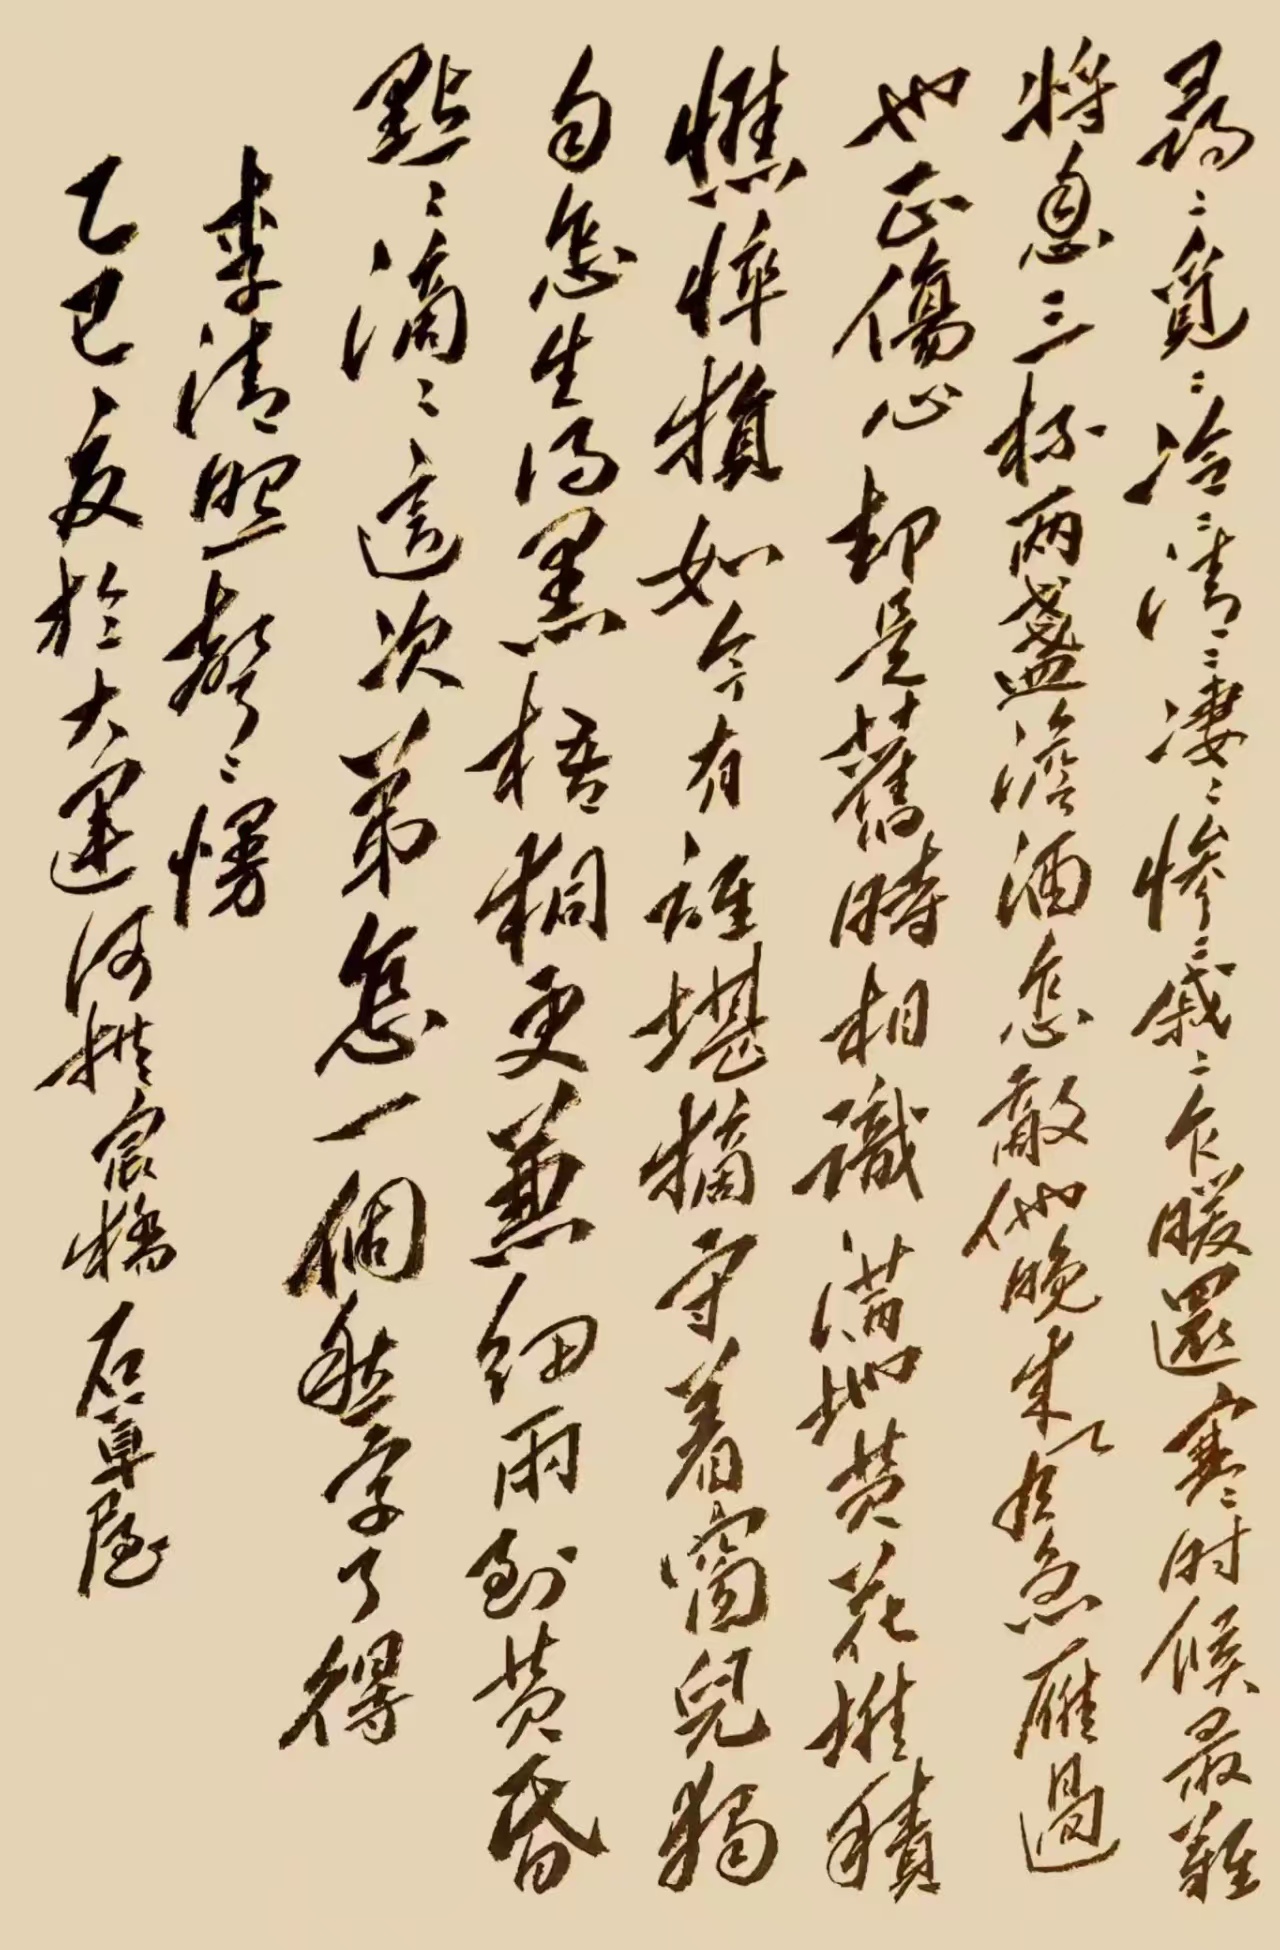 尋〻覓〻冷〻清〻凄〻慘〻戚〻乍暖還寒〻时候最難
將息三杯兩盞澹酒怎敵他晚来風急雁過
也正傷心却是舊時相識滿地黄花堆積
憔悴損如今有誰堪摘守着窗兒獨
自怎生得黑梧桐更兼細雨到黄昏
點〻滴〻這次第怎一個愁字了得
李清照聲〻慢
乙巳夏於大運河拱宸橋石草屋